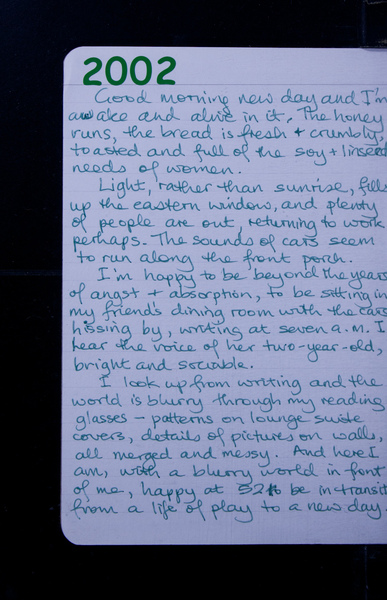 2002
Good morning new day and I'm
awake and alive in it. The honey
runs, the bread is fresh + crumbly,
toasted and full of the soy + linseed
needs of women.
Light, rather than sunrise, fills
up the eastern window, and plenty
of people are out, returning to work
perhaps. The sounds of cars seem
to run along the front porch.
I'm happy to be beyond the years
of angst + absorption, to be sitting in
my friend's dining room with the cars
hissing by, writing at seven a.m. I
hear the voice of her two-year-old,
bright and sociable.
I look up from writing and the
world is blurry through my reading
glasses – patterns on lounge suite
covers, details of pictures on walls,
all merged and messy. And here I
am, with a blurry world in front
of me, happy at 52 to be in transit
from a life of play to a new day.